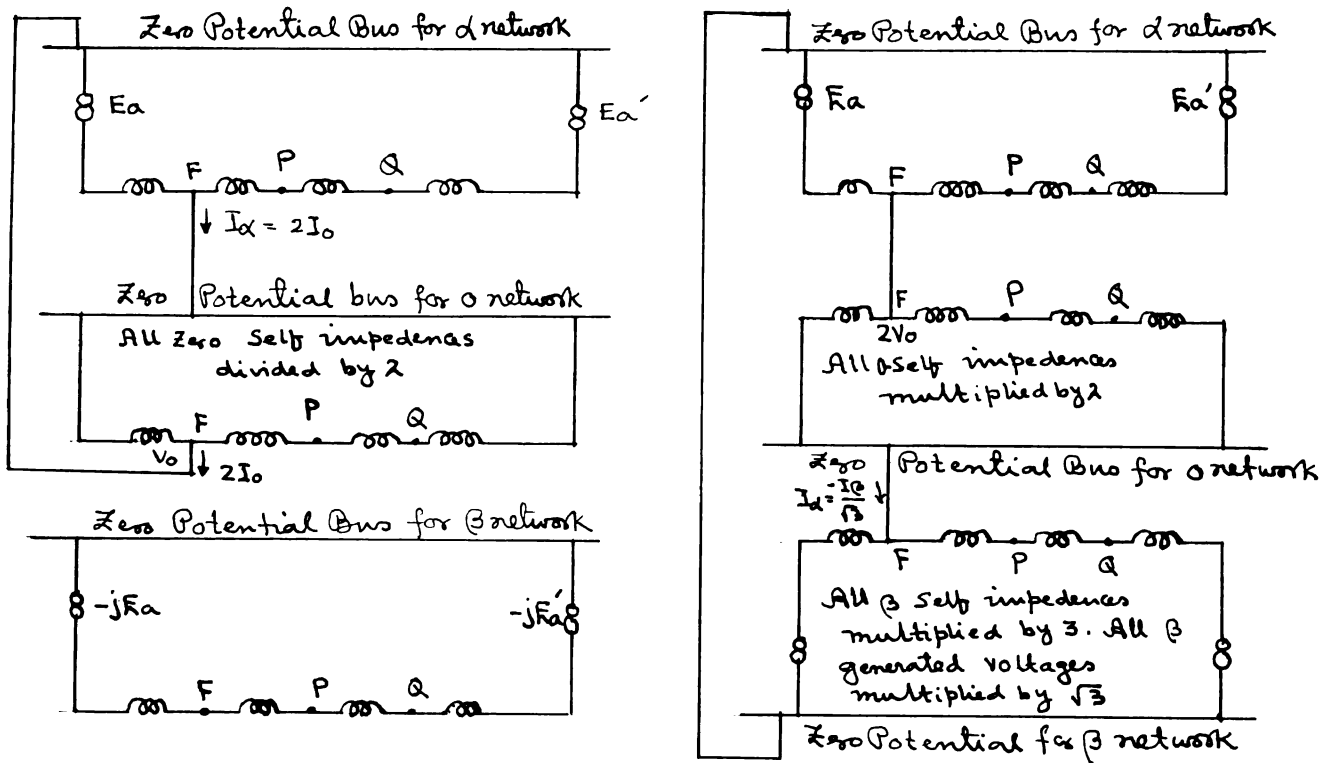 Zero Potential Bus for α network
Ea
Ea′
F
P
Q
↓ Iα = 2I₀
Zero Potential bus for 0 network
All Zero Self impedenas
divided by 2
F
P
Q
V₀
↓ 2I₀
Zero Potential Bus for β network
-jEa
-jEa′
F
P
Q
Zero Potential Bus for α network
Ea
Ea′
F
P
Q
F
P
Q
2V₀
All 0 Self impedences
multiplied by 2
Zero Potential Bus for 0 network
Iα = -Iβ/√3 ↓
F
P
Q
All β Self impedences
multiplied by 3. All β
generated voltages
multiplied by √3
Zero Potential for β network